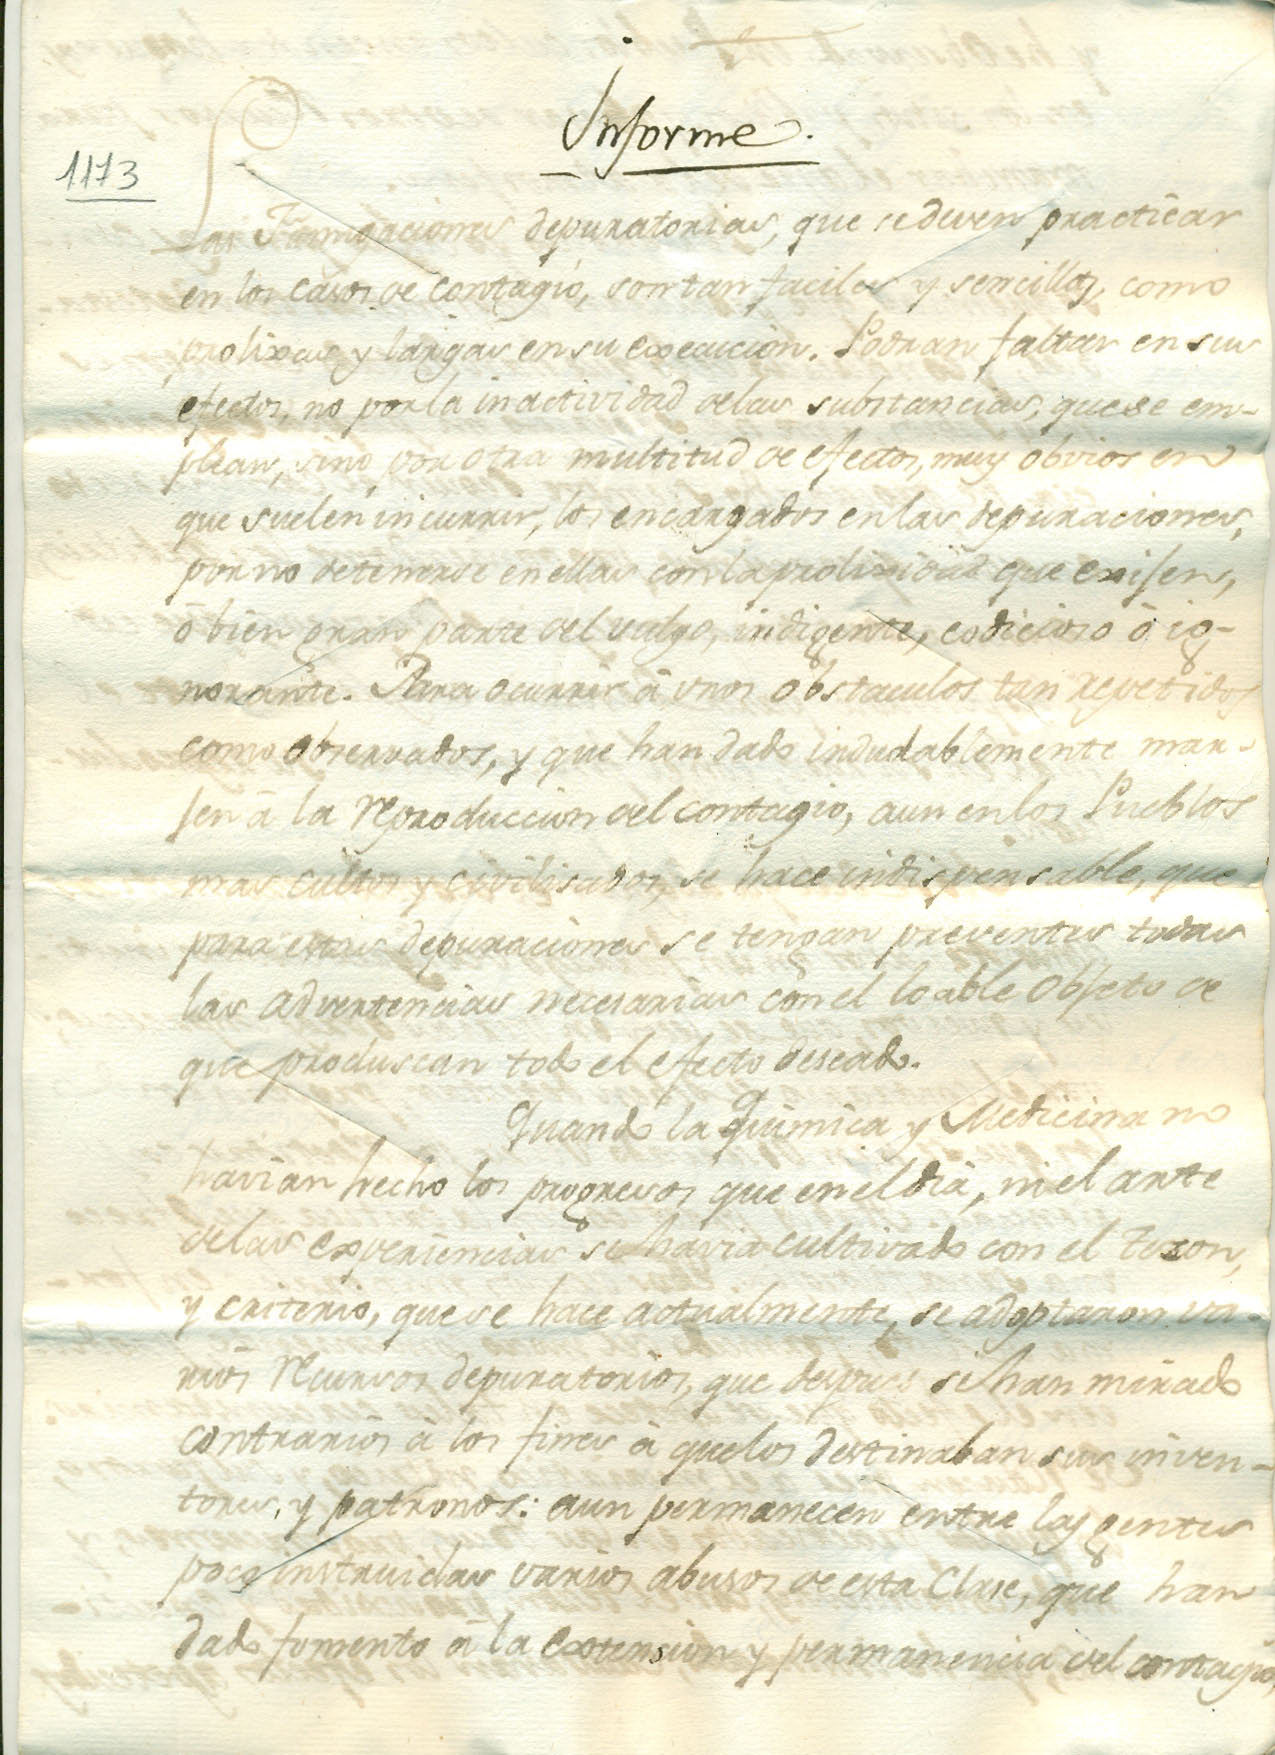 Informe.
1173
Las Fumigaciones depuratorias, que se deven practicar
en los casos de contagio, son tan faciles y sencillos, como
prolixas y largas en su execucion. Podran faltar en sus
efectos, no por la inactividad de las substancias, que se em-
plean, sino por otra multitud de efectos, muy obvios en
que suelen incurrir, los encargados en las depuraciones,
por no detenerse en ellas con la prolixidad que exijen,
ó bien gran parte del vulgo, indigente, codicioso ó ig-
norante. Para ocurrir á unos obstaculos tan repetidos
como observados, y que han dado indudablemente mar-
jen á la reproduccion del contagio, aun en los Pueblos
mas cultos y civilisados, se hace indispensable, que
para estas depuraciones se tengan preventas todas
las advertencias necesarias con el loable objeto de
que produscan todo el efecto deseado.
Quando la Quimica y Medicina no
havian hecho los progresos que en el dia, ni el arte
de las experiencias se havia cultivado con el tezon,
y criterio, que se hace actualmente, se adoptaron va-
rios recursos depuratorios, que despues se han mirado
contrarios á los fines á que los destinaban sus inven-
tores, y patronos: aun permanecen entre las gentes
poco instruidas varios abusos de esta Clase, que han
dado fomento á la extension y permanencia del contagio,